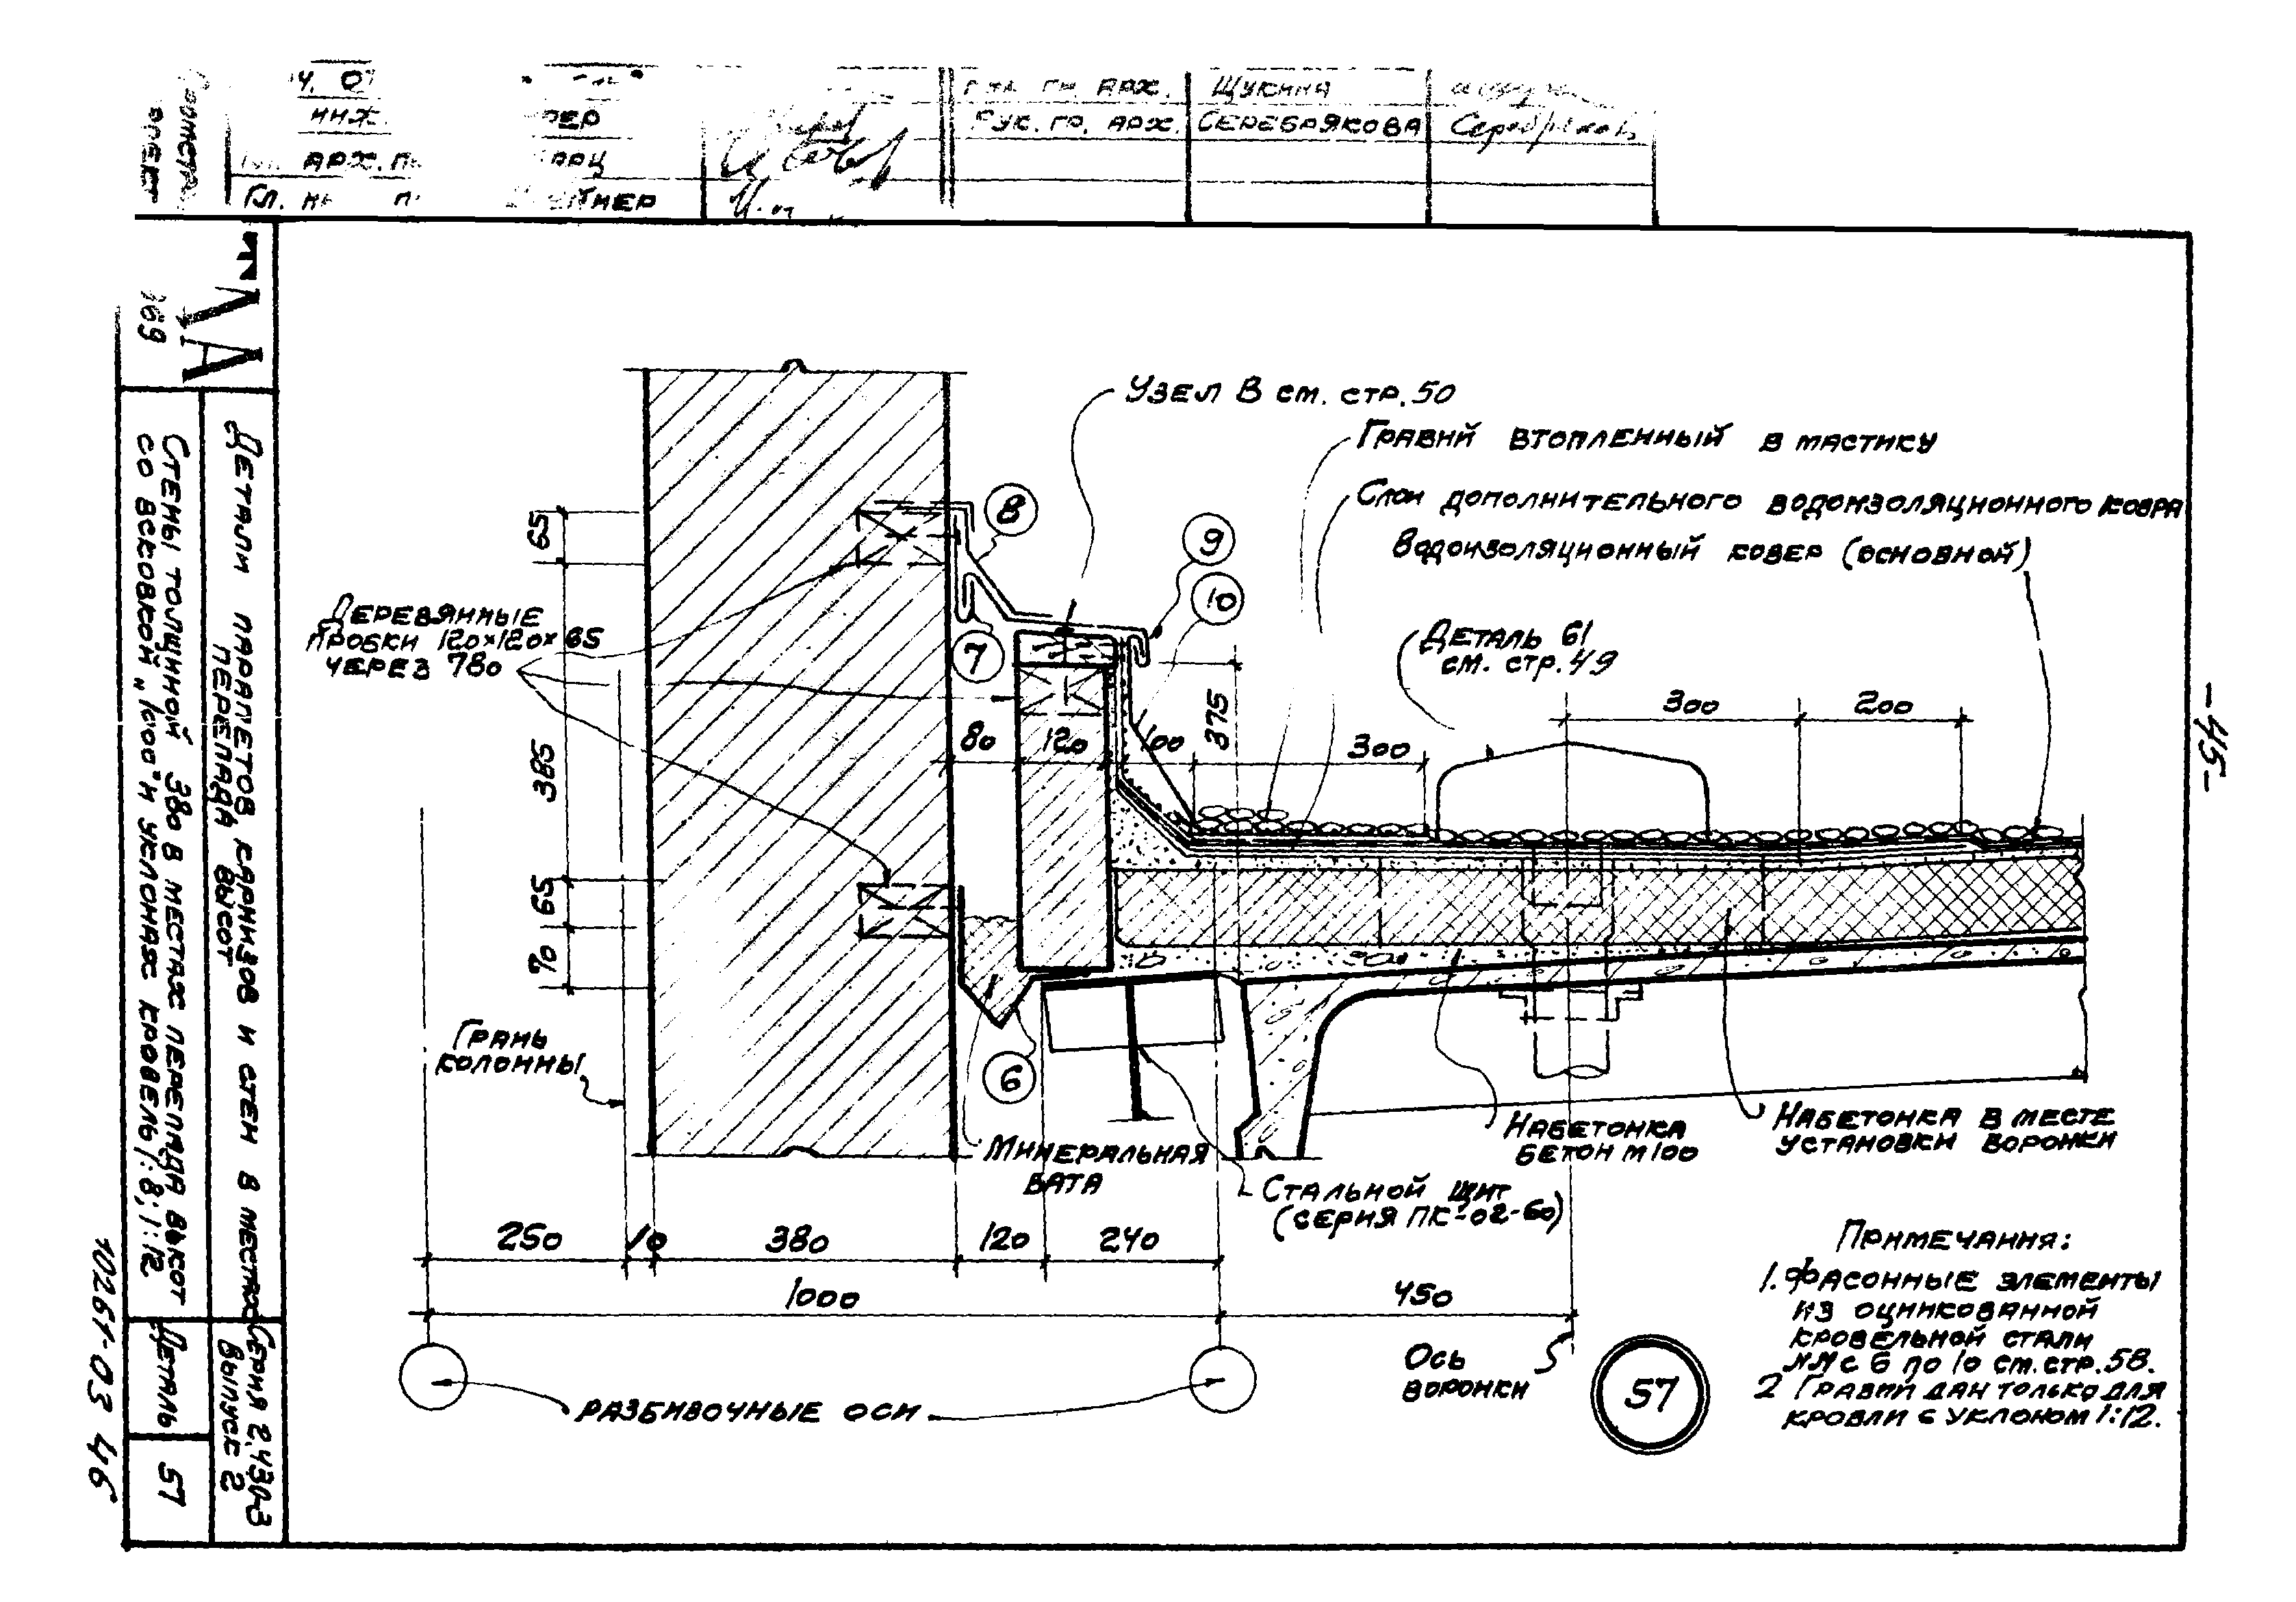 ИНЖ.
АРХ.
ГЛ.
ГР. АРХ.
ЩУКИНА
РУК. ГР. АРХ.
СЕРЕБРЯКОВА
ДЕТАЛИ ПАРАПЕТОВ, КАРНИЗОВ И СТЕН В МЕСТАХ
ПЕРЕПАДА ВЫСОТ
СТЕНЫ ТОЛЩИНОЙ 380 В МЕСТАХ ПЕРЕПАДА ВЫСОТ
СО ВСКОВКОЙ „1000" И УКЛОНАХ КРОВЕЛЬ 1:8; 1:12
СЕРИЯ 2.430-3
ВЫПУСК 2
ДЕТАЛЬ
57
10261-03 46
-45-
УЗЕЛ В СМ. СТР. 50
ГРАВИЙ ВТОПЛЕННЫЙ В МАСТИКУ
СЛОИ ДОПОЛНИТЕЛЬНОГО ВОДОИЗОЛЯЦИОННОГО КОВРА
ВОДОИЗОЛЯЦИОННЫЙ КОВЕР (ОСНОВНОЙ)
8
9
10
7
65
385
65
70
ДЕРЕВЯННЫЕ
ПРОБКИ 120×120×65
ЧЕРЕЗ 780
ДЕТАЛЬ 61
СМ. СТР. 49
300
200
375
80
120
100
300
ГРАНЬ
КОЛОННЫ
6
МИНЕРАЛЬНАЯ
ВАТА
СТАЛЬНОЙ ЩИТ
(СЕРИЯ ПК-02-60)
НАБЕТОНКА
БЕТОН М100
НАБЕТОНКА В МЕСТЕ
УСТАНОВКИ ВОРОНКИ
250
10
380
120
240
1000
450
ОСЬ
ВОРОНКИ
РАЗБИВОЧНЫЕ ОСИ
57
ПРИМЕЧАНИЯ:
1. ФАСОННЫЕ ЭЛЕМЕНТЫ
ИЗ ОЦИНКОВАННОЙ
КРОВЕЛЬНОЙ СТАЛИ
NN С 6 ПО 10 СМ. СТР. 58.
2 ГРАВИЙ ДАН ТОЛЬКО ДЛЯ
КРОВЛИ С УКЛОНОМ 1:12.